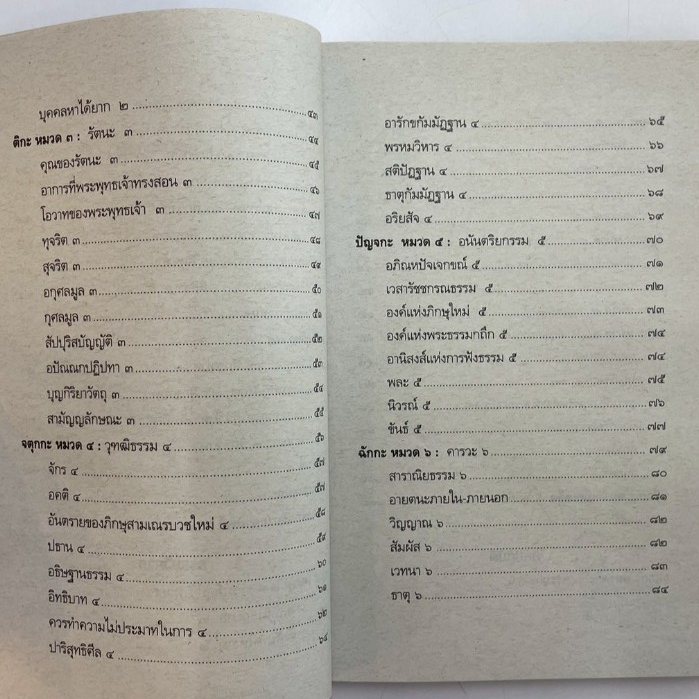 บุคคลหาได้ยาก ๒ ........ ๔๓
ติกะ หมวด ๓ : รัตนะ ๓ ........ ๔๔
คุณของรัตนะ ๓ ........ ๔๕
อาการที่พระพุทธเจ้าทรงสอน ๓ ........ ๔๖
โอวาทของพระพุทธเจ้า ๓ ........ ๔๗
ทุจริต ๓ ........ ๔๘
สุจริต ๓ ........ ๔๙
อกุศลมูล ๓ ........ ๕๐
กุศลมูล ๓ ........ ๕๑
สัปปุริสบัญญัติ ๓ ........ ๕๒
อปัณณกปฏิปทา ๓ ........ ๕๓
บุญกิริยาวัตถุ ๓ ........ ๕๔
สามัญญลักษณะ ๓ ........ ๕๕
จตุกกะ หมวด ๔ : วุฑฒิธรรม ๔ ........ ๕๖
จักร ๔ ........ ๕๗
อคติ ๔ ........ ๕๗
อันตรายของภิกษุสามเณรบวชใหม่ ๔ ........ ๕๘
ปธาน ๔ ........ ๕๙
อธิษฐานธรรม ๔ ........ ๖๐
อิทธิบาท ๔ ........ ๖๑
ควรทำความไม่ประมาทในการ ๔ ........ ๖๒
ปาริสุทธิศีล ๔ ........ ๖๔
อารักขกัมมัฏฐาน ๔ ........ ๖๕
พรหมวิหาร ๔ ........ ๖๖
สติปัฏฐาน ๔ ........ ๖๗
ธาตุกัมมัฏฐาน ๔ ........ ๖๘
อริยสัจ ๔ ........ ๖๙
ปัญจกะ หมวด ๕ : อนันตริยกรรม ๕ ........ ๗๐
อภิณหปัจเจกขณ์ ๕ ........ ๗๑
เวสารัชชกรณธรรม ๕ ........ ๗๒
องค์แห่งภิกษุใหม่ ๕ ........ ๗๓
องค์แห่งพระธรรมกถึก ๕ ........ ๗๔
อานิสงส์แห่งการฟังธรรม ๕ ........ ๗๔
พละ ๕ ........ ๗๕
นิวรณ์ ๕ ........ ๗๖
ขันธ์ ๕ ........ ๗๗
ฉักกะ หมวด ๖ : คารวะ ๖ ........ ๗๙
สาราณิยธรรม ๖ ........ ๘๐
อายตนะภายใน-ภายนอก ........ ๘๑
วิญญาณ ๖ ........ ๘๒
สัมผัส ๖ ........ ๘๒
เวทนา ๖ ........ ๘๓
ธาตุ ๖ ........ ๘๔